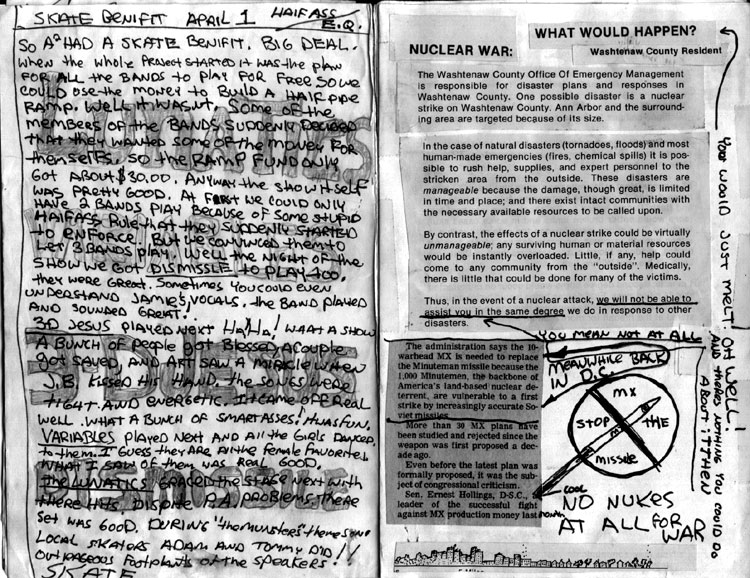 SKATE BENIFIT APRIL 1 HAIFASS E.Q.
SO A² HAD A SKATE BENIFIT. BIG DEAL.
when the whole PROJECT STARTED it was the plan
FOR All the BANDS to PLAY FOR FREE SO we
COULD use the MONEY to BUILD A HAIF PIPE
RAMP. Well it wasnt. Some of the
members of the BANDS SUDDENLY DECIDED
that they wanted some of the money FOR
themselfs, so the RAMP FUND ONLY
GOT ABOUT $30.00. ANYWAY the SHOW itself
WAS PRETTY GOOD. At FIRST we could ONLY
HAVE 2 BANDS PLAY BECAUSE of some stupid
HAIFASS Rule that they SUDDENLY STARTED
to ENFORCE. But we convinced them to
LET 3 BANDS PLAY. Well the NIGHT of the
SHOW we GOT DISMISSLE to PLAY too.
they were GREAT. Sometimes You could even
UNDERSTAND JAMIES VOCALS. the BAND PLAYED
AND SOUNDED GREAT!
3D JESUS PLAYED NEXT HA!HA! WHAT A SHOW
A BUNCH of people got Blessed, A couple
got SAVED, AND ART SAW A MIRACLE WHEN
J.B. KISSED HIS HAND. the SONGS WERE
tIGHT AND ENERGETIC. It CAME off REAL
Well. WHAT A BUNCH OF SMARTASSES! It WAS FUN.
VARIABLES PLAYED NEXT AND All the GIRLS DANCED
to them. I GUESS they ARE All the FEMALE FAVORITE!
WHAT I SAW OF THEM WAS REAL GOOD.
the LUNATICS GRACED the STAGE NEXT with
THERE HITS. DISPITE P.A. PROBLEMS THERE
SET WAS GOOD. DURING "the MUNSTERS" theme SONG
LOCAL SKATORS ADAM AND TOMMY DID!!
OUTRAGEOUS FOOTPLANTS of the SPEAKERS!
SKATE
NUCLEAR WAR: WHAT WOULD HAPPEN?
Washtenaw County Resident
The Washtenaw County Office Of Emergency Management
is responsible for disaster plans and responses in
Washtenaw County. One possible disaster is a nuclear
strike on Washtenaw County. Ann Arbor and the surround-
ing area are targeted because of its size.
In the case of natural disasters (tornadoes, floods) and most
human-made emergencies (fires, chemical spills) it is pos-
sible to rush help, supplies, and expert personnel to the
stricken area from the outside. These disasters are
manageable because the damage, though great, is limited
in time and place; and there exist intact communities with
the necessary available resources to be called upon.
By contrast, the effects of a nuclear strike could be virtually
unmanageable; any surviving human or material resources
would be instantly overloaded. Little, if any, help could
come to any community from the "outside". Medically,
there is little that could be done for many of the victims.
Thus, in the event of a nuclear attack, we will not be able to
assist you in the same degree we do in response to other
disasters.
YOU MEAN NOT AT ALL
YOU WOULD JUST MELT! OH WELL!
AND THERES NOTHING YOU COULD DO
ABOUT IT THEN
The administration says the 10-
warhead MX is needed to replace
the Minuteman missile because the
1,000 Minutemen, the backbone of
America's land-based nuclear de-
terrent, are vulnerable to a first
strike by increasingly accurate So-
viet missiles.
More than 30 MX plans have
been studied and rejected since the
weapon was first proposed a dec-
ade ago.
Even before the latest plan was
formally proposed, it was the sub-
ject of congressional criticism.
Sen. Ernest Hollings, D-S.C.,
leader of the successful fight
against MX production money last
month
MEANWHILE BACK
IN D.C.
STOP THE MX missile
cool
NO NUKES
AT ALL FOR
WAR